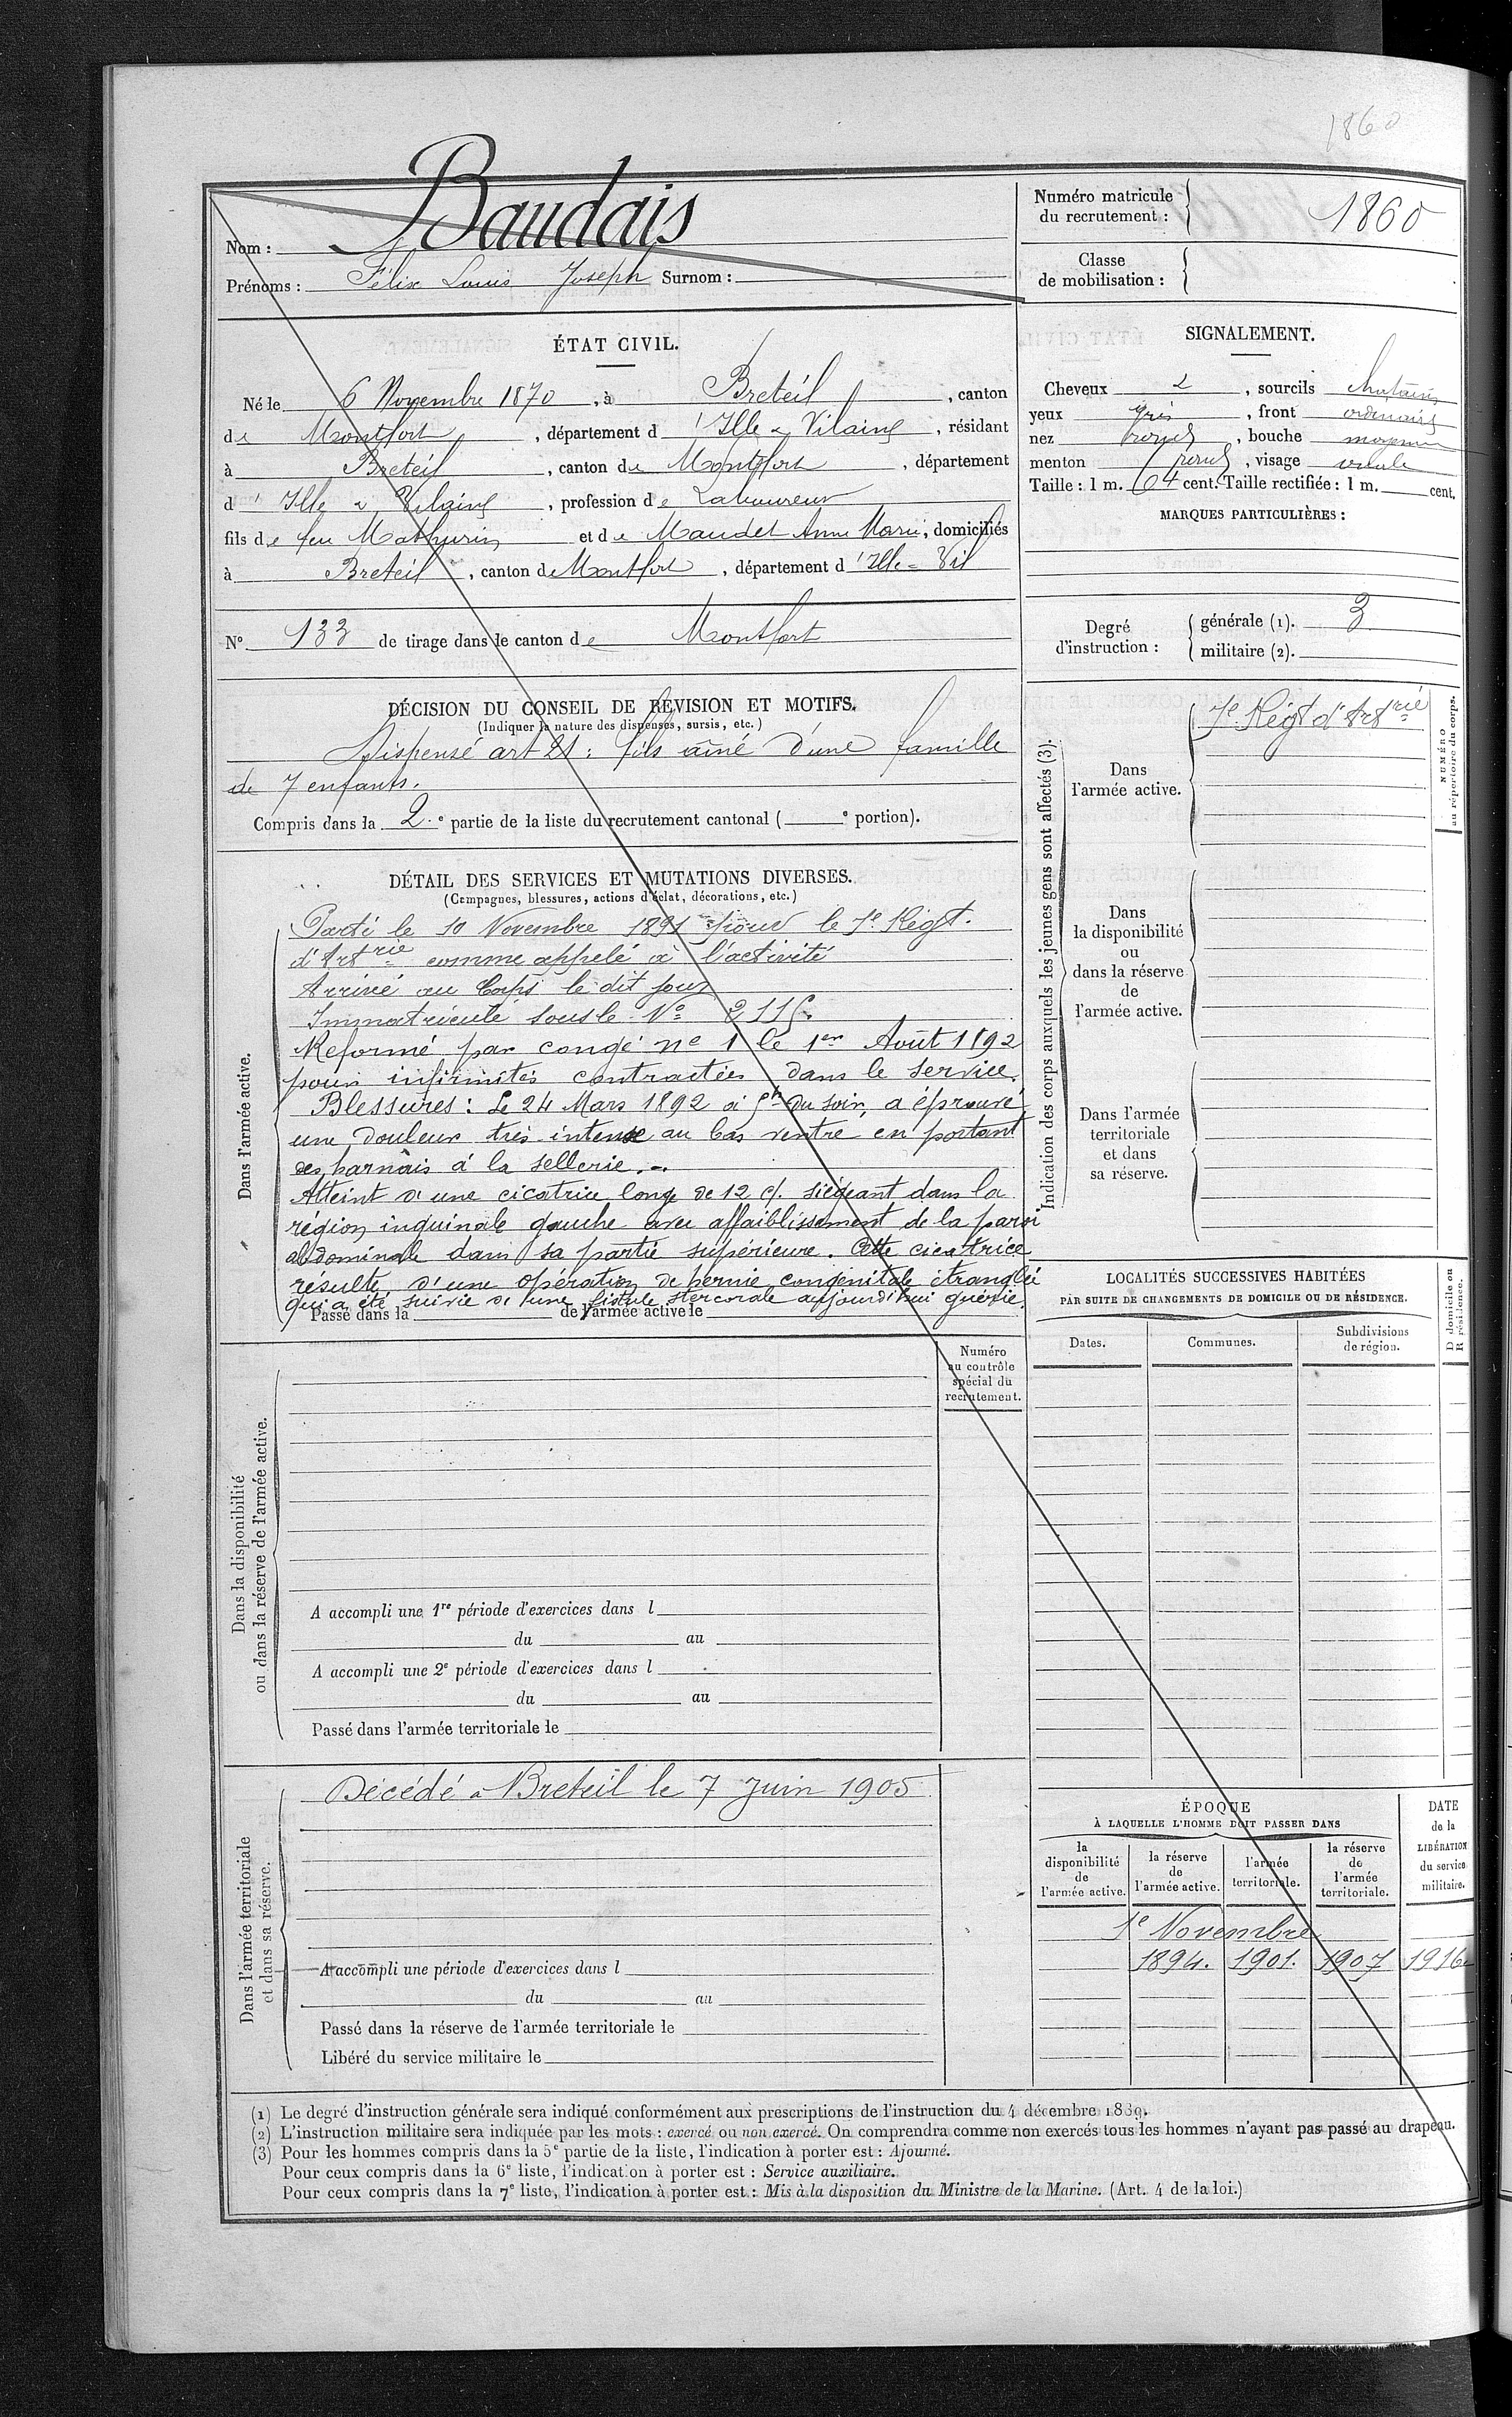 1860
Nom : Baudais
Prénoms : Félix Louis Joseph Surnom :
Numéro matricule du recrutement : 1860
Classe de mobilisation :
ÉTAT CIVIL.
Né le 6 Novembre 1870, à Breteil, canton
de Montfort, département d'Ille & Vilaine, résidant
à Breteil, canton de Montfort, département
d'Ille & Vilaine, profession de Laboureur
fils de feu Mathurin et de Maudet Anne Marie, domiciliés
à Breteil, canton de Montfort, département d'Ille=Vil
N° 133 de tirage dans le canton de Montfort
SIGNALEMENT.
Cheveux &, sourcils chatains
yeux gris, front ordinaire
nez moyen, bouche moyenne
menton rond, visage ovale
Taille : 1 m. 64 cent. Taille rectifiée : 1 m. cent.
MARQUES PARTICULIÈRES :
Degré d'instruction : générale (1). 3
militaire (2).
DÉCISION DU CONSEIL DE RÉVISION ET MOTIFS.
(Indiquer la nature des dispenses, sursis, etc.)
Dispensé art 21 : fils aîné d'une famille
de 7 enfants.
Compris dans la 2.e partie de la liste du recrutement cantonal ( e portion).
DÉTAIL DES SERVICES ET MUTATIONS DIVERSES.
(Campagnes, blessures, actions d'éclat, décorations, etc.)
Dans l'armée active.
Parti le 10 Novembre 1891 pour le 7e Régt.
d'Artrie comme appelé à l'activité
Arrivé au Corps le dit jour
Immatriculé sous le N°
Reformé par congé n° 1 le 1er Août 1892
pour infirmités contractées dans le service.
Blessures : Le 24 Mars 1892 à 5h du soir, a éprouvé
une douleur très intense au bas ventre en portant
des harnais à la sellerie.
Atteint d'une cicatrice longe de 12 c/. siégeant dans la
région inguinale gauche avec affaiblissement de la paroi
abdominale dans sa partie supérieure. Cette cicatrice
résulte d'une opération de hernie congénitale étranglée
qui a été suivie d'une fistule stercorale aujourd'hui guérie.
Passé dans la de l'armée active le
Indication des corps auxquels les jeunes gens sont affectés (3).
NUMÉRO au répertoire du corps.
Dans l'armée active. 7e Régt d'Artrie
Dans la disponibilité ou dans la réserve de l'armée active.
Dans l'armée territoriale et dans sa réserve.
LOCALITÉS SUCCESSIVES HABITÉES
PAR SUITE DE CHANGEMENTS DE DOMICILE OU DE RÉSIDENCE.
D domicile ou R résidence.
Dates. Communes. Subdivisions de région.
Numéro au contrôle spécial du recrutement.
Dans la disponibilité ou dans la réserve de l'armée active.
A accompli une 1re période d'exercices dans l
du au
A accompli une 2e période d'exercices dans l
du au
Passé dans l'armée territoriale le
Dans l'armée territoriale et dans sa réserve.
Décédé à Breteil le 7 Juin 1905
A accompli une période d'exercices dans l
du au
Passé dans la réserve de l'armée territoriale le
Libéré du service militaire le
ÉPOQUE
À LAQUELLE L'HOMME DOIT PASSER DANS
la disponibilité de l'armée active.
la réserve de l'armée active.
l'armée territoriale.
la réserve de l'armée territoriale.
DATE de la LIBÉRATION du service militaire.
1e Novembre
1894. 1901. 1907 1916
(1) Le degré d'instruction générale sera indiqué conformément aux prescriptions de l'instruction du 4 décembre 1889.
(2) L'instruction militaire sera indiquée par les mots : exercé ou non exercé. On comprendra comme non exercés tous les hommes n'ayant pas passé au drapeau.
(3) Pour les hommes compris dans la 5e partie de la liste, l'indication à porter est : Ajourné.
Pour ceux compris dans la 6e liste, l'indication à porter est : Service auxiliaire.
Pour ceux compris dans la 7e liste, l'indication à porter est : Mis à la disposition du Ministre de la Marine. (Art. 4 de la loi.)